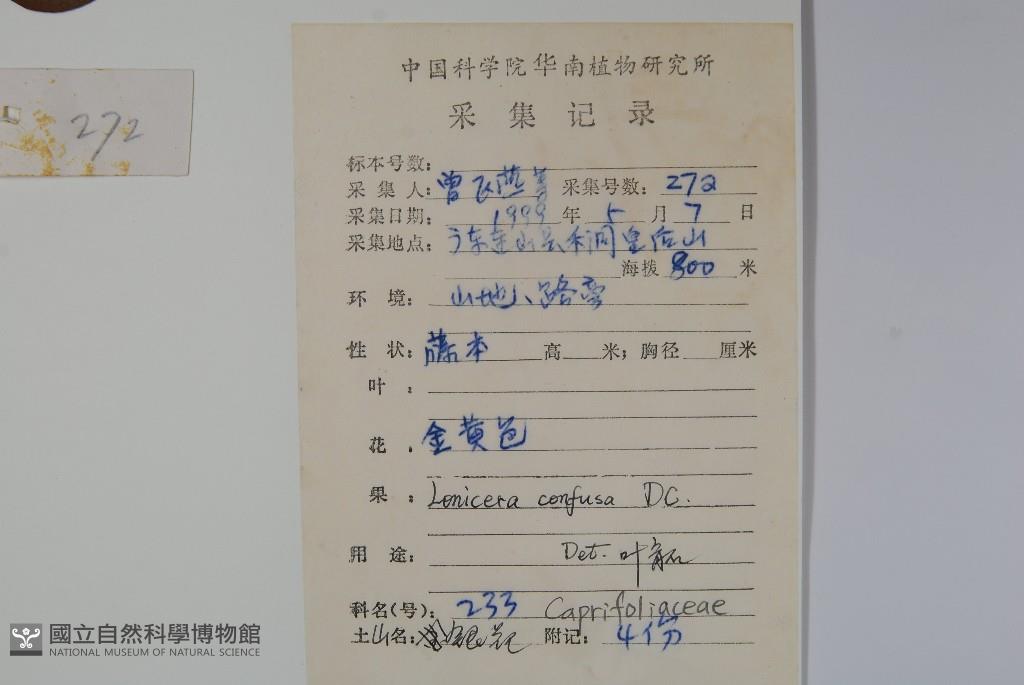 中国科学院华南植物研究所
采集记录
272
标本号数:
采集人: 曾飞燕 采集号数: 272
采集日期: 1999 年 5 月 7 日
采集地点: 广东连山县禾洞皇后山
海拨 800 米
环境: 山地、路旁
性状: 藤本 高 米; 胸径 厘米
叶:
花: 金黄色
果: Lonicera confusa DC.
用途: Det. 叶
科名(号): 233 Caprifoliaceae
土山名: 银花 附记: 4份
國立自然科學博物館
NATIONAL MUSEUM OF NATURAL SCIENCE